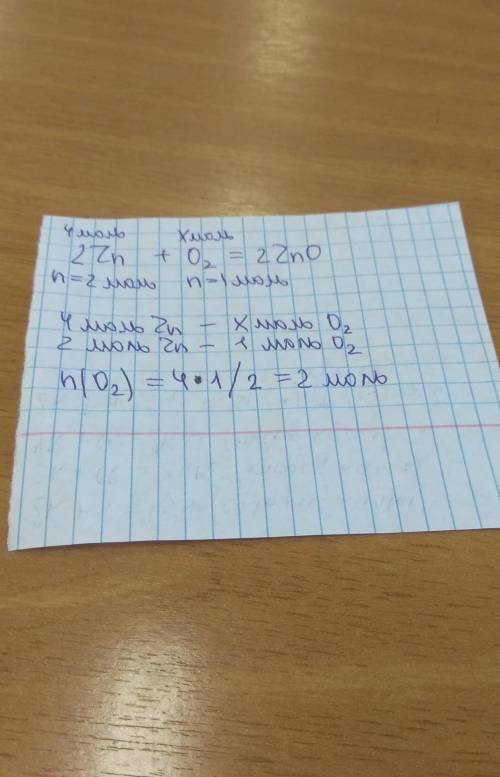 4 моль X моль
2Zn + O₂ = 2ZnO
n = 2 моль n = 1 моль
4 моль Zn – X моль O₂
2 моль Zn – 1 моль O₂
n(O₂) = 4 · 1 / 2 = 2 моль